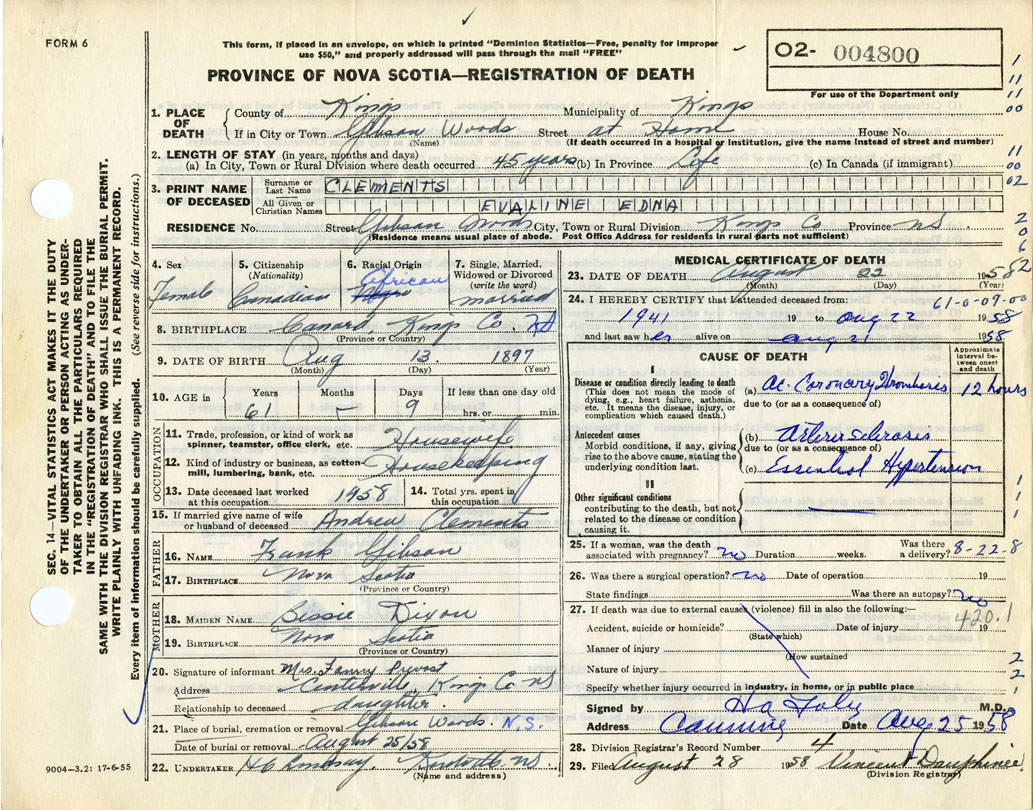 FORM 6
This form, if placed in an envelope, on which is printed "Dominion Statistics—Free, penalty for improper
use $50," and properly addressed will pass through the mail "FREE"
PROVINCE OF NOVA SCOTIA—REGISTRATION OF DEATH
02- 004800
For use of the Department only
SEC. 14—VITAL STATISTICS ACT MAKES IT THE DUTY
OF THE UNDERTAKER OR PERSON ACTING AS UNDER-
TAKER TO OBTAIN ALL THE PARTICULARS REQUIRED
IN THE "REGISTRATION OF DEATH" AND TO FILE THE
SAME WITH THE DIVISION REGISTRAR WHO SHALL ISSUE THE BURIAL PERMIT.
WRITE PLAINLY WITH UNFADING INK. THIS IS A PERMANENT RECORD.
Every item of information should be carefully supplied. (See reverse side for instructions.)
1. PLACE OF DEATH
County of Kings Municipality of Kings
If in City or Town Gibson Woods Street at Home House No.
(Name) (If death occurred in a hospital or institution, give the name instead of street and number)
2. LENGTH OF STAY (in years, months and days)
(a) In City, Town or Rural Division where death occurred 45 years (b) In Province Life (c) In Canada (if immigrant)
3. PRINT NAME OF DECEASED
Surname or Last Name CLEMENTS
All Given or Christian Names EVALINE EDNA
RESIDENCE No. Street Gibson Woods City, Town or Rural Division Kings Co Province NS
(Residence means usual place of abode. Post Office Address for residents in rural parts not sufficient)
4. Sex Female
5. Citizenship (Nationality) Canadian
6. Racial Origin African Negro
7. Single, Married, Widowed or Divorced (write the word) married
8. BIRTHPLACE Canard, Kings Co. NS
(Province or Country)
9. DATE OF BIRTH Aug 13 1897
(Month) (Day) (Year)
10. AGE in Years Months Days If less than one day
61 - 9 hrs. or min.
OCCUPATION
11. Trade, profession, or kind of work as spinner, teamster, office clerk, etc. Housewife
12. Kind of industry or business, as cotton-mill, lumbering, bank, etc. Housekeeping
13. Date deceased last worked at this occupation 1958
14. Total yrs. spent in this occupation
15. If married give name of wife or husband of deceased Andrew Clements
FATHER
16. NAME Frank Gibson
17. BIRTHPLACE Nova Scotia
(Province or Country)
MOTHER
18. MAIDEN NAME Bessie Dixon
19. BIRTHPLACE Nova Scotia
(Province or Country)
20. Signature of informant Mrs. Fanny Prevost
Address Centerville, Kings Co NS
Relationship to deceased daughter
21. Place of burial, cremation or removal Gibson Woods N.S.
Date of burial or removal August 25/58
22. UNDERTAKER H C Lindsay, Kentville N.S.
(Name and address)
9004—3.2: 17-6-55
MEDICAL CERTIFICATE OF DEATH
23. DATE OF DEATH August 22 1958
(Month) (Day) (Year)
24. I HEREBY CERTIFY that I attended deceased from: 61-0-09-00
1941 19 to Aug 22 1958
and last saw her alive on Aug 21 1958
CAUSE OF DEATH
Approximate interval between onset and death
I
Disease or condition directly leading to death
(This does not mean the mode of dying, e.g., heart failure, asthenia, etc. It means the disease, injury, or complication which caused death.)
(a) Ac. Coronary Thrombosis 12 hours
due to (or as a consequence of)
Antecedent causes
Morbid conditions, if any, giving rise to the above cause, stating the underlying condition last.
(b) Arteriosclerosis
due to (or as a consequence of)
(c) Essential Hypertension
II
Other significant conditions
contributing to the death, but not related to the disease or condition causing it.
25. If a woman, was the death associated with pregnancy? no Duration weeks. Was there a delivery? 8-22-8
26. Was there a surgical operation? no Date of operation 19
State findings Was there an autopsy? no
27. If death was due to external causes (violence) fill in also the following:—
420.1
Accident, suicide or homicide? Date of injury 19
(State which)
Manner of injury
(How sustained
Nature of injury
Specify whether injury occurred in industry, in home, or in public place
Signed by M.D.
Address Canning Date Aug 25 1958
28. Division Registrar's Record Number 4
29. Filed August 28 1958 Vincent Dauphinee
(Division Registrar)
1
11
11
00
11
00
02
2
0
6
52
1
1
1
1
2
2
1